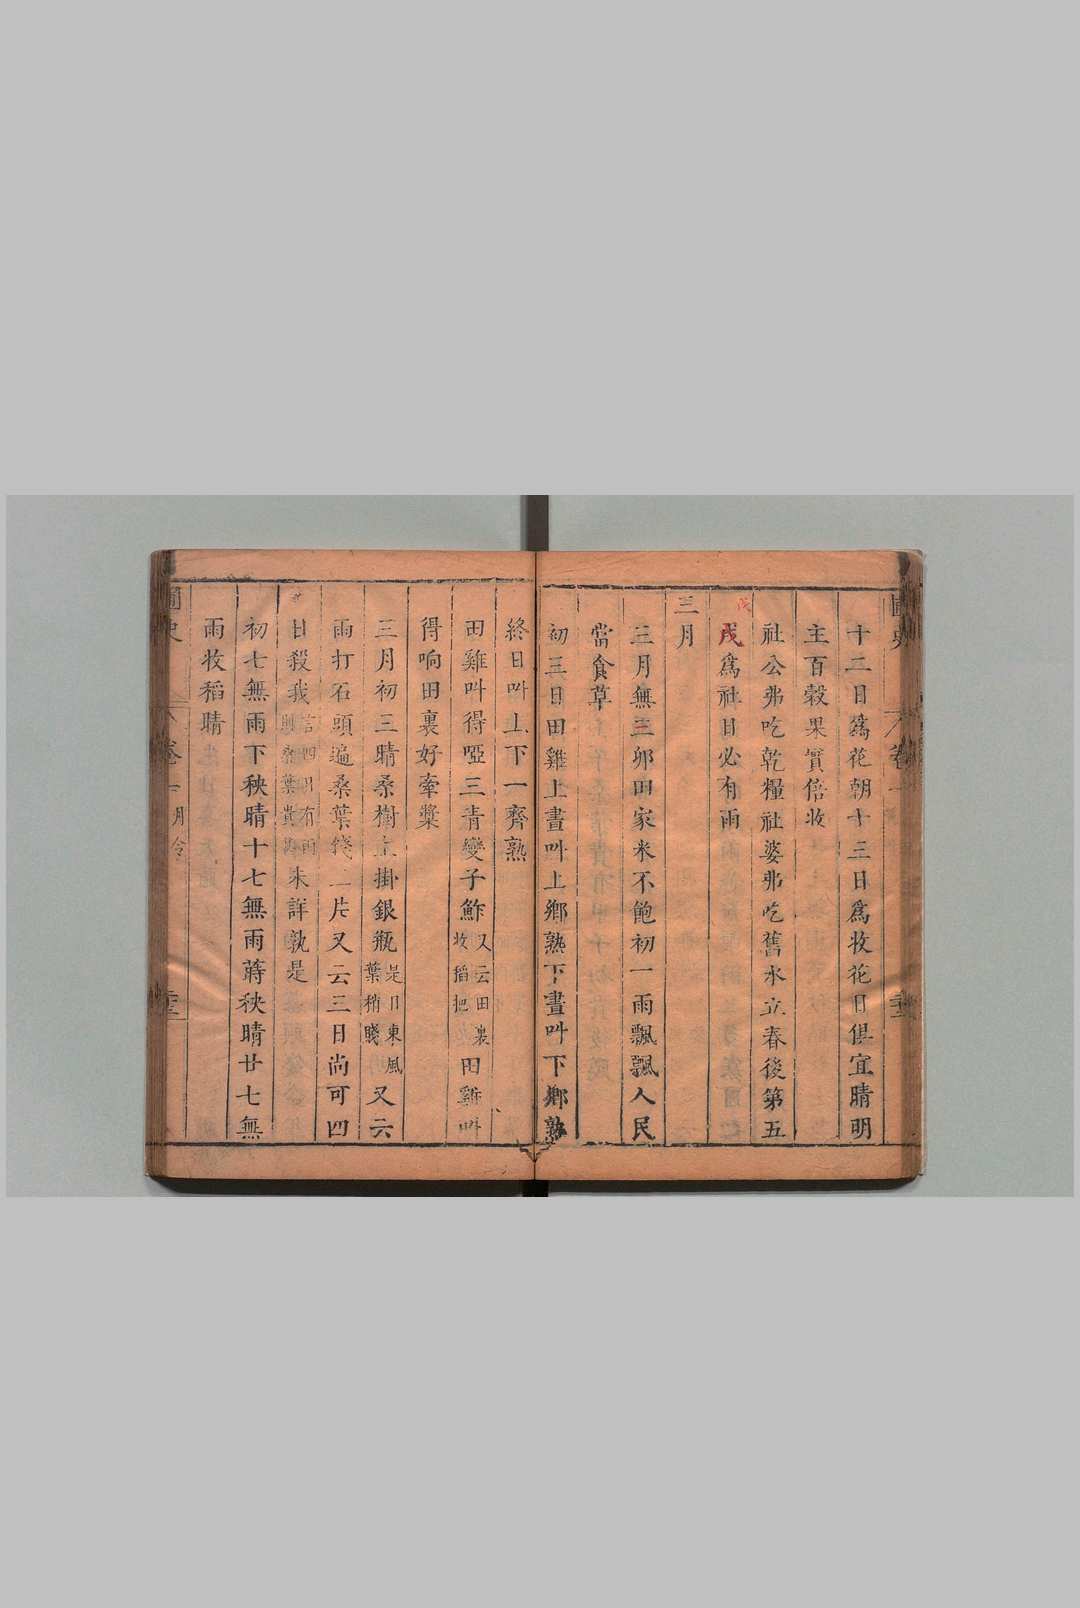 十二日爲花朝十三日爲收花日俱宜晴明
主百穀果實倍收
社公弗吃乾糧社婆弗吃舊水立春後第五
戊爲社日必有雨
戊
三月
三月無三卯田家米不飽初一雨飄飄人民
當食草
初三日田雞上晝叫上鄉熟下晝叫下鄉熟
終日叫上下一齊熟
田雞叫得啞三青變子鮓又云田裏收稻把田雞叫
得响田裏好牽槳
三月初三晴桑樹上掛銀瓶是日東風葉稍賤又云
雨打石頭遍桑葉錢二片又云三日尚可四
日殺我未詳孰是
初七無雨下秧晴十七無雨蒔秧晴廿七無
雨收稻晴